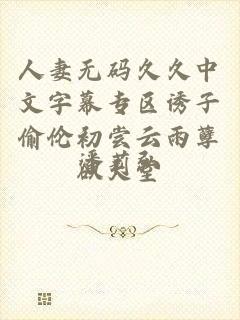 人妻无码久久中
文字幕专区诱子
偷伦初尝云雨孽